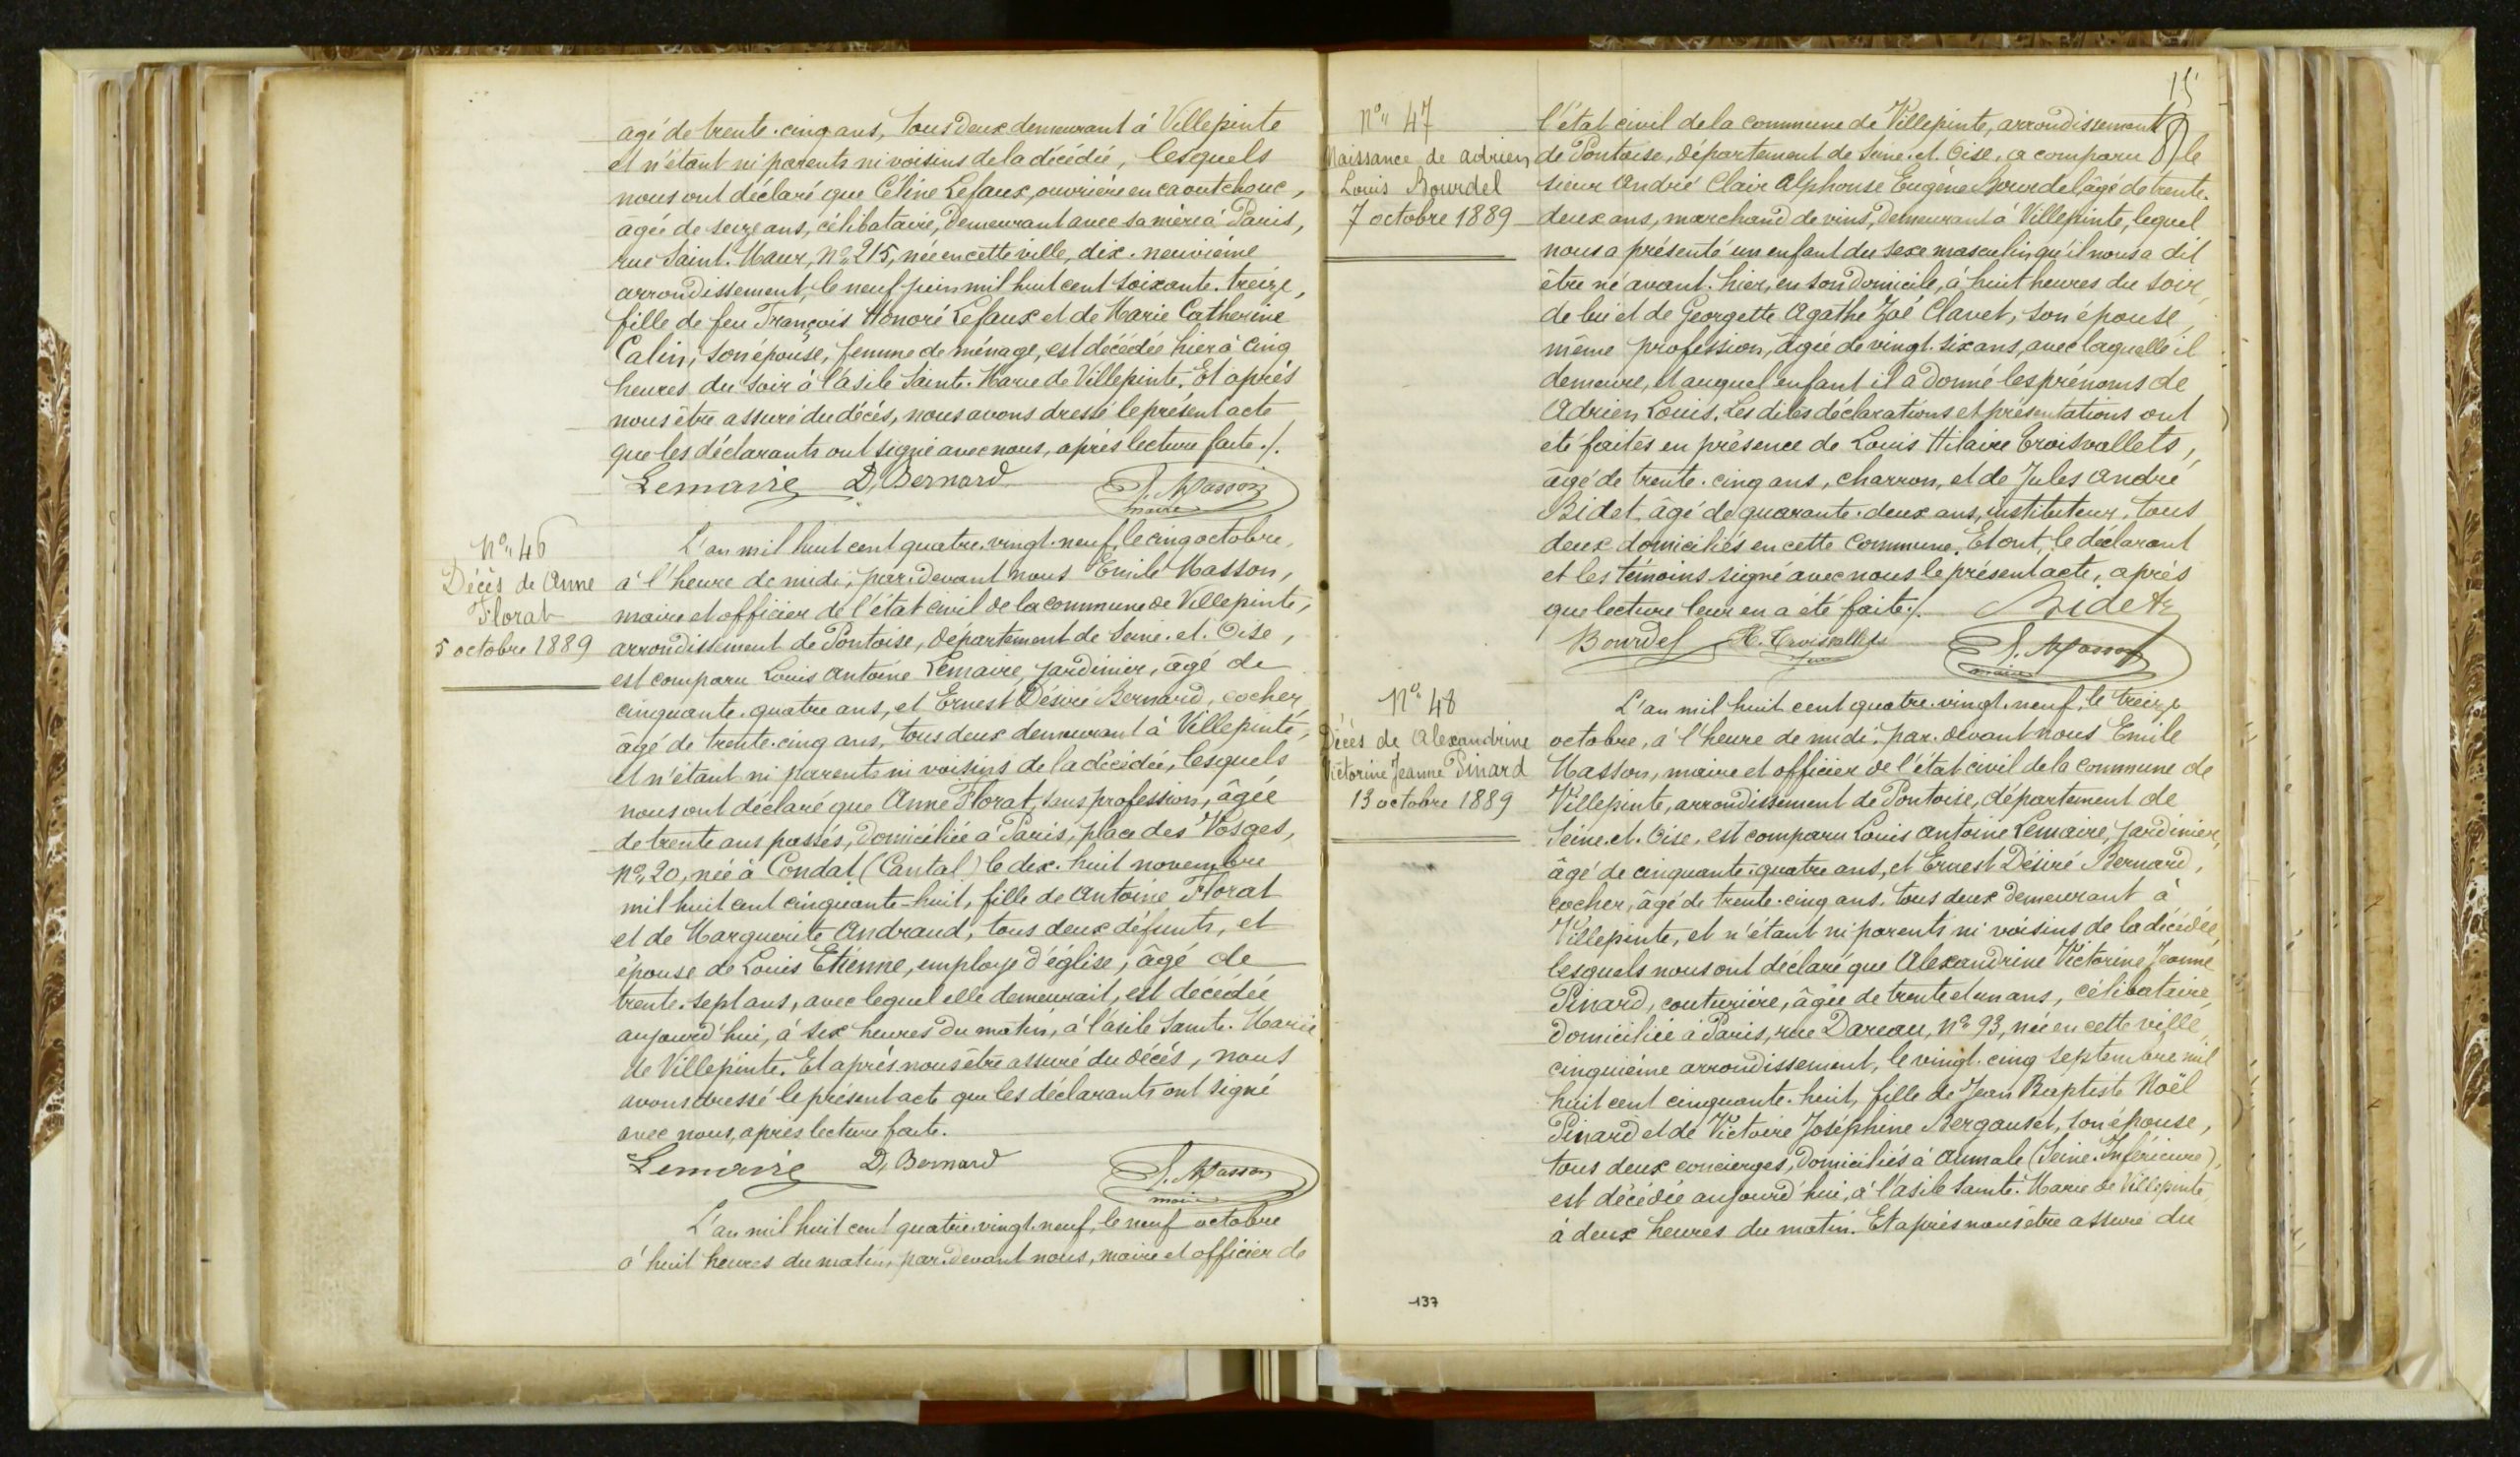 agé de trente-cinq ans, tous deux demeurant à Villepinte
et n'étant ni parents ni voisins de la décédée, lesquels
nous ont déclaré que Céline Lefaux, ouvrière en caoutchouc,
âgée de seize ans, célibataire, demeurant avec sa mère à Paris,
rue Saint-Maur, No 215, née en cette ville, dix-neuvième
arrondissement, le neuf juin mil huit cent soixante-treize,
fille de feu François Honoré Lefaux et de Marie Catherine
Calin, son épouse, femme de ménage, est décédée hier à cinq
heures du soir à l'asile Sainte-Marie de Villepinte. Et après
nous être assuré du décès, nous avons dressé le présent acte
que les déclarants ont signé avec nous, après lecture faite ./.
Lemaire D. Bernard E. Masson
maire
No 46
Décès de Anne
Florat
5 octobre 1889
L'an mil huit cent quatre-vingt-neuf, le cinq octobre,
à l'heure de midi, par-devant nous Emile Masson,
maire et officier de l'état civil de la commune de Villepinte,
arrondissement de Pontoise, département de Seine-et-Oise,
est comparu Louis Antoine Lemaire, jardinier, âgé de
cinquante-quatre ans, et Ernest Désiré Bernard, cocher,
âgé de trente-cinq ans, tous deux demeurant à Villepinte,
et n'étant ni parents ni voisins de la décédée, lesquels
nous ont déclaré que Anne Florat, sans profession, âgée
de trente ans passés, domiciliée à Paris, place des Vosges,
No 20, née à Condat (Cantal) le dix-huit novembre
mil huit cent cinquante-huit, fille de Antoine Florat
et de Marguerite Andraud, tous deux défunts, et
épouse de Louis Etienne, employé d'église, âgé de
trente-sept ans, avec lequel elle demeurait, est décédée
aujourd'hui, à six heures du matin, à l'asile Sainte-Marie
de Villepinte. Et après nous être assuré du décès, nous
avons dressé le présent acte que les déclarants ont signé
avec nous, après lecture faite.
Lemaire D. Bernard E. Masson
maire
L'an mil huit cent quatre-vingt-neuf, le neuf octobre
à huit heures du matin, par-devant nous, maire et officier de
15
No 47
Naissance de Adrien
Louis Bourdel
7 octobre 1889
l'état civil de la commune de Villepinte, arrondissement
de Pontoise, département de Seine-et-Oise, a comparu le
sieur André Clair Alphonse Eugène Bourdel âgé de trente-
deux ans, marchand de vins, demeurant à Villepinte, lequel
nous a présenté un enfant du sexe masculin qu'il nous a dit
être né avant-hier, en son domicile, à huit heures du soir,
de lui et de Georgette Agathe Zoé Clavet, son épouse,
même profession, âgée de vingt-six ans, avec laquelle il
demeure, et auquel enfant il a donné les prénoms de
Adrien Louis. Les dites déclarations et présentations ont
été faites en présence de Louis Hilaire Troisvallets,
âgé de trente-cinq ans, charron, et de Jules André
Bidet, âgé de quarante-deux ans, instituteur, tous
deux domiciliés en cette commune. Et ont, le déclarant
et les témoins signé avec nous le présent acte, après
que lecture leur en a été faite ./. Bidet
Bourdel H. Troisvallets E. Masson
maire
No 48
Décès de Alexandrine
Victorine Jeanne Pinard
13 octobre 1889
L'an mil huit cent quatre-vingt-neuf, le treize
octobre, à l'heure de midi, par-devant nous Emile
Masson, maire et officier de l'état civil de la commune de
Villepinte, arrondissement de Pontoise, département de
Seine-et-Oise, est comparu Louis Antoine Lemaire, jardinier,
âgé de cinquante-quatre ans, et Ernest Désiré Bernard,
cocher, âgé de trente-cinq ans, tous deux demeurant à
Villepinte, et n'étant ni parents ni voisins de la décédée,
lesquels nous ont déclaré que Alexandrine Victorine Jeanne
Pinard, couturière, âgée de trente et un ans, célibataire,
domiciliée à Paris, rue Dareau, No 93, née en cette ville,
cinquième arrondissement, le vingt-cinq septembre mil
huit cent cinquante-huit, fille de Jean Baptiste Noël
Pinard et de Victoire Joséphine Bergauset, son épouse,
tous deux concierges, domiciliés à Aumale (Seine-Inférieure),
est décédée aujourd'hui, à l'asile Sainte-Marie de Villepinte,
à deux heures du matin. Et après nous être assuré du
137